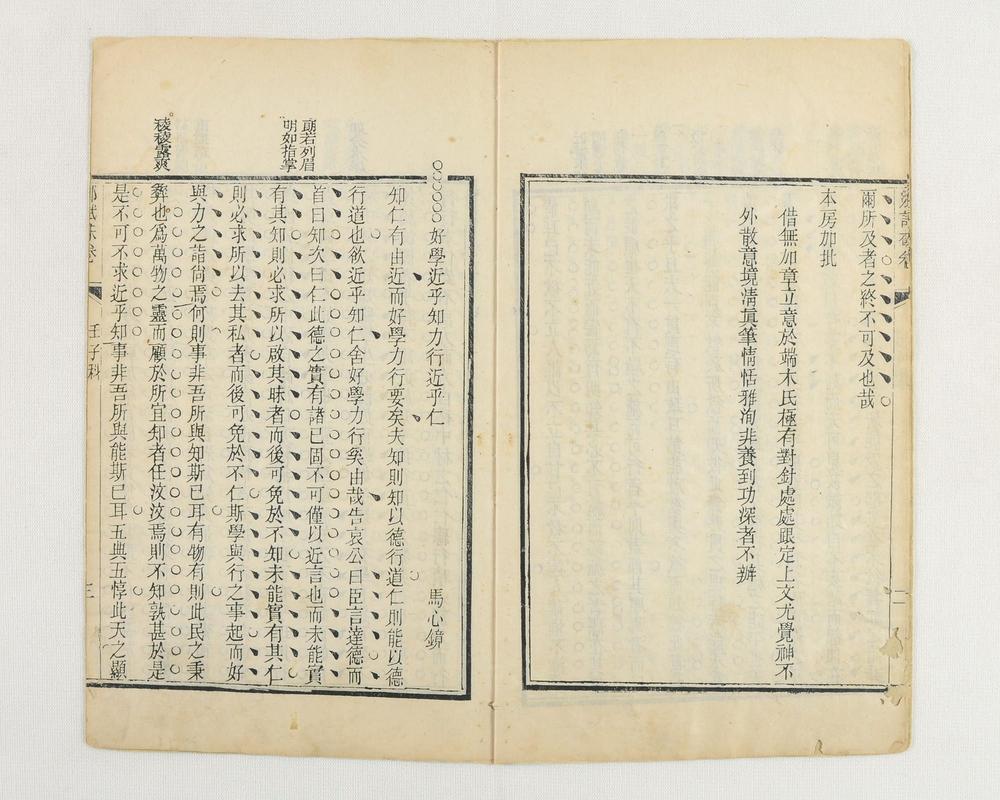 爾所及者之終不可及也哉
本房加批
借無加章立意於端木氏極有對針處處跟定上文尤覺神不
外散意境清真筆情恬雅洵非養到功深者不辦
二
好學近乎知力行近乎仁
馬心鏡
知仁有由近而好學力行要矣夫知則知以德行道仁則能以德
行道也欲近乎知仁舍好學力行奚由哉告哀公曰臣言達德而
首曰知次曰仁此德之實有諸已固不可僅以近言也而未能實
有其知則必求所以啟其昧者而後可免於不知未能實有其仁
則必求所以去其私者而後可免於不仁斯學與行之事起而好
與力之詣尙焉何則事非吾所與知斯已耳有物有則此民之秉
彝也爲萬物之靈而顧於所宜知者任汶汶焉則不知孰甚於是
是不可不求近乎知事非吾所與能斯已耳五典五惇此天之顯
朗若列眉
明如指掌
稜稜露爽
壬子科
三